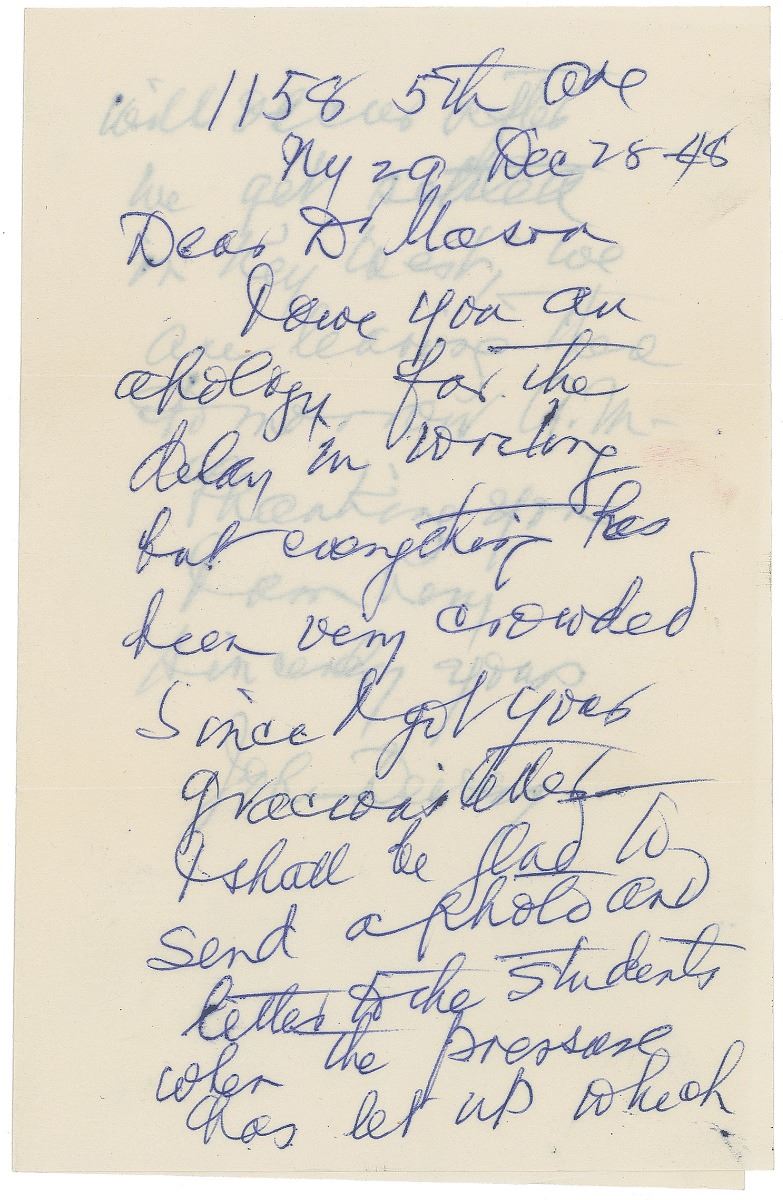 1158 5th Ave
Ny 29 Dec 28-48
Dear Dr Mason
I owe you an
apology for the
delay in writing
but everything has
been very crowded
Since I got your
gracious letter
I shall be glad to
send a photo and
letter to the students
when the pressure
has let up which